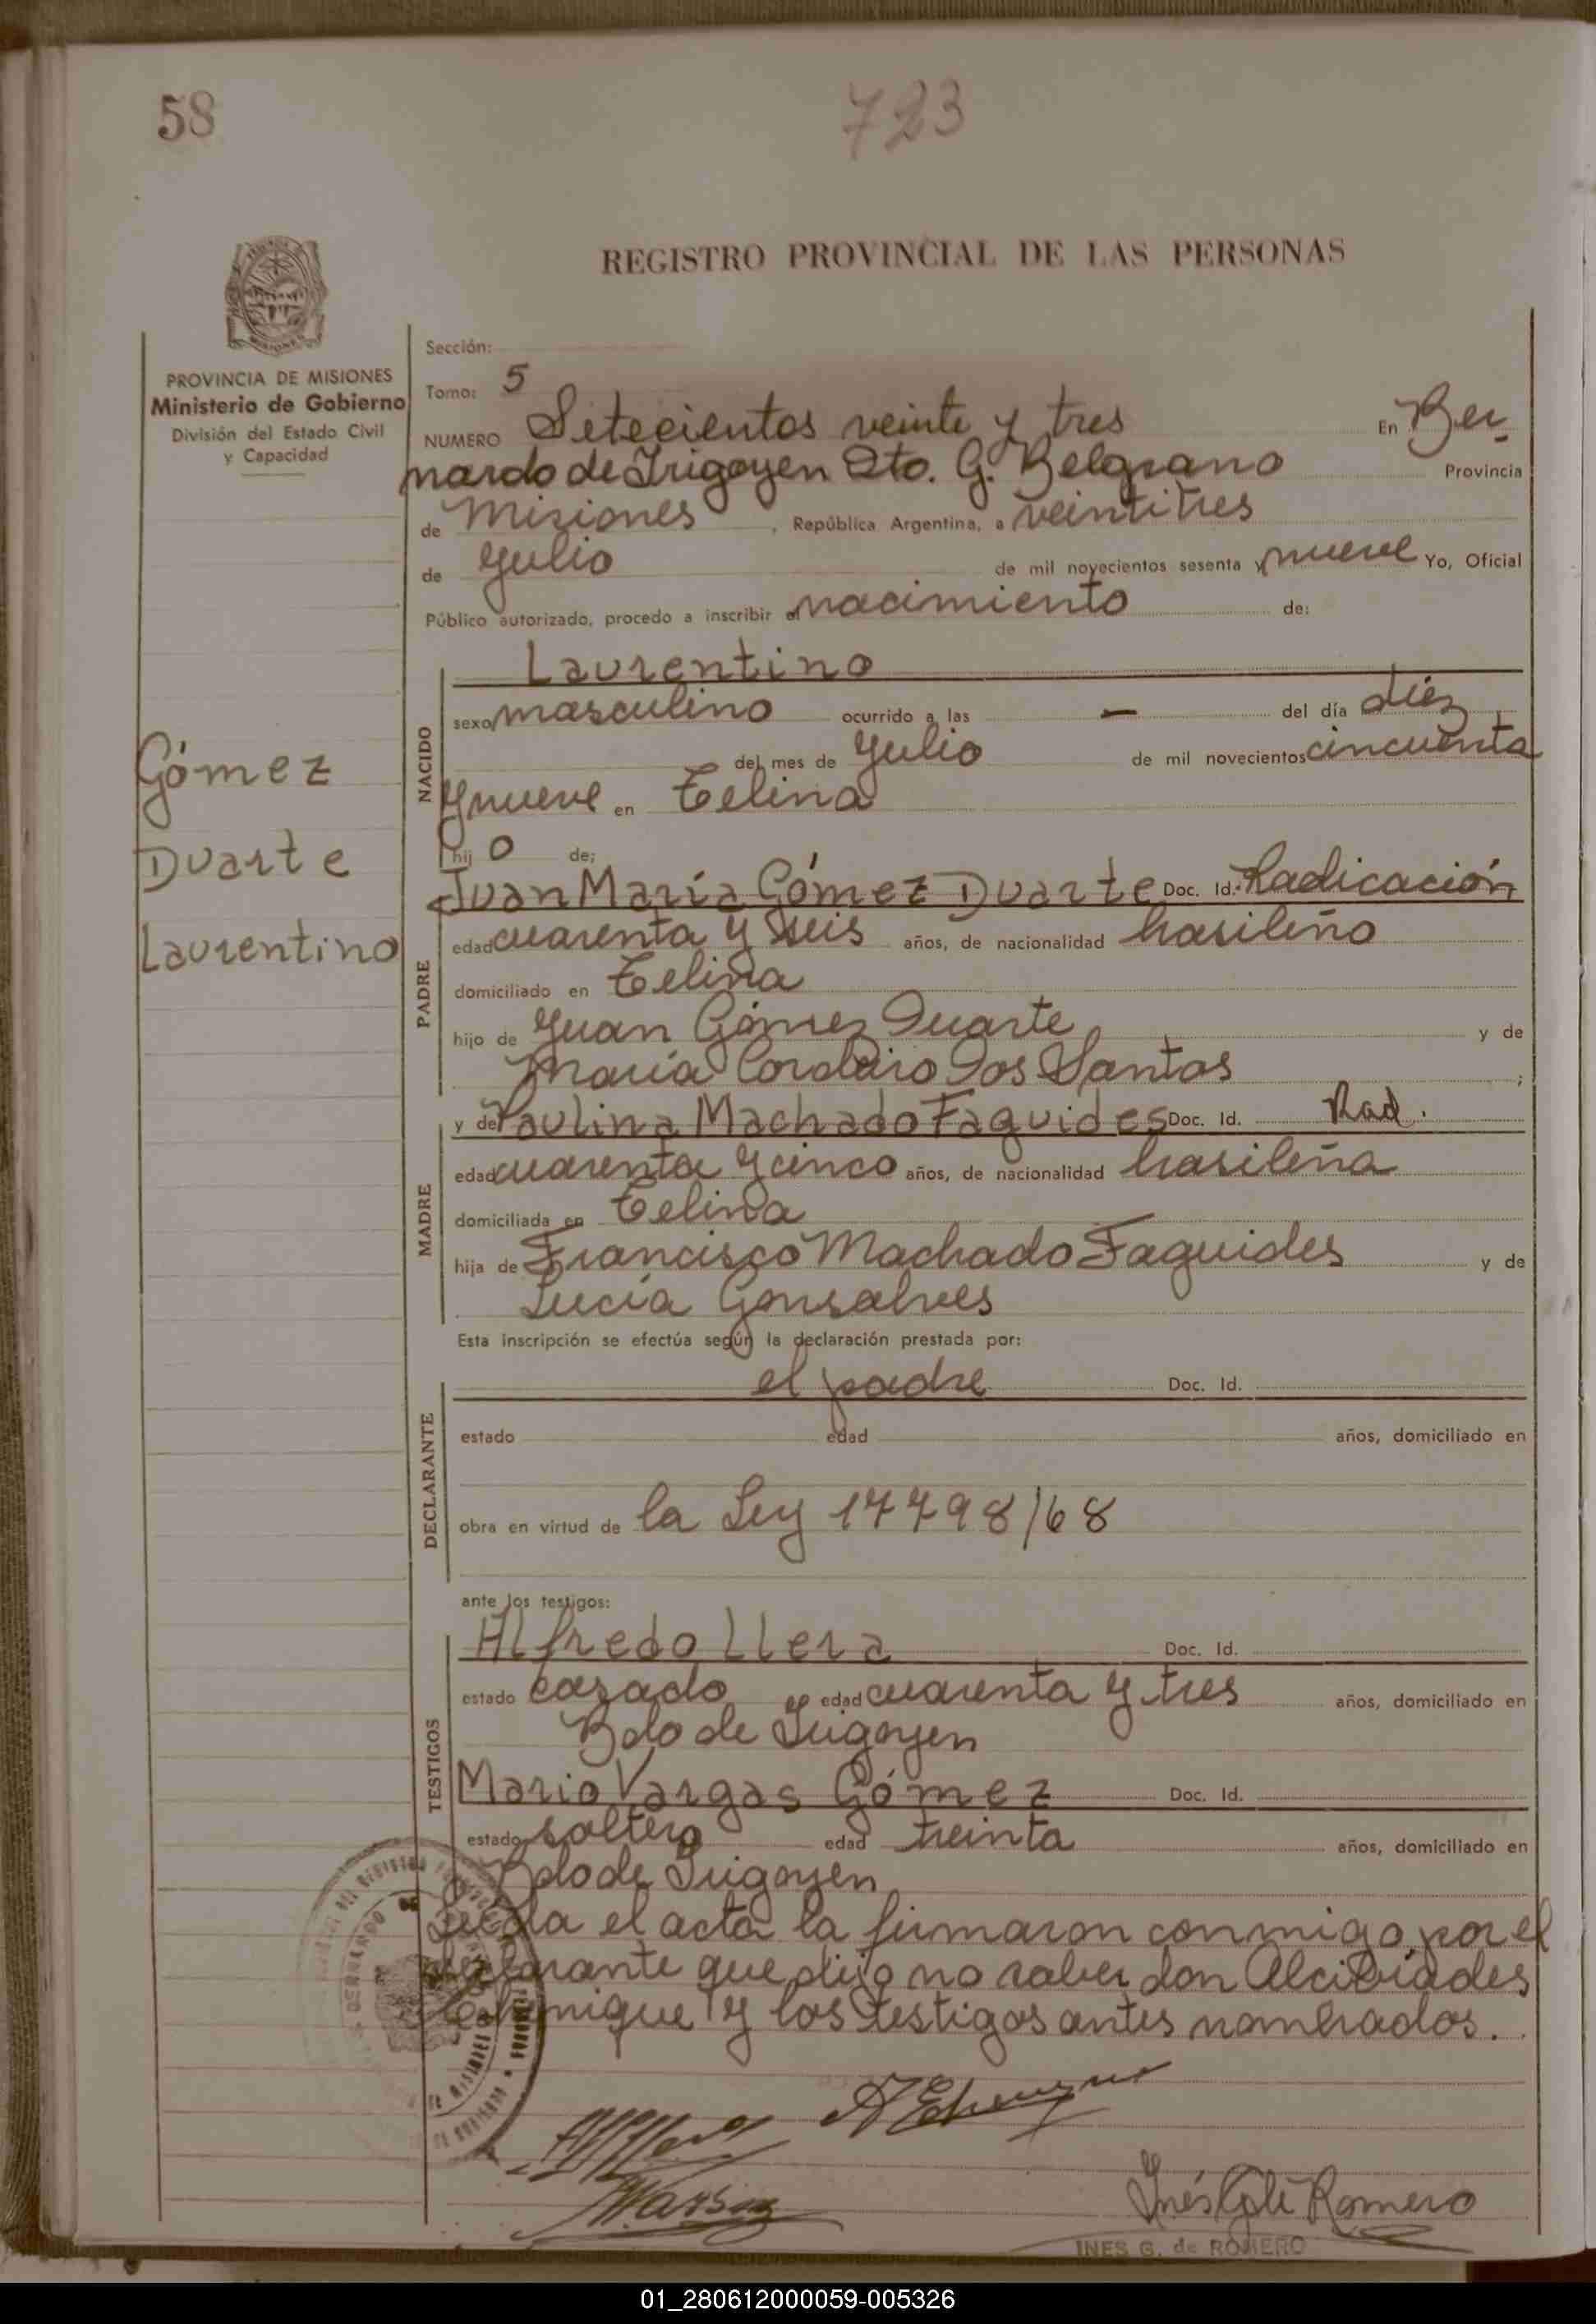 58
723
REGISTRO PROVINCIAL DE LAS PERSONAS
PROVINCIA DE MISIONES
Ministerio de Gobierno
División del Estado Civil
y Capacidad
Gómez
Duarte
Laurentino
Sección:
Tomo: 5
NUMERO Setecientos veinte y tres En Ber-
nardo de Irigoyen Dto. G. Belgrano Provincia
de Misiones, República Argentina, a veintitres
de Julio de mil novecientos sesenta y nueve Yo, Oficial
Público autorizado, procedo a inscribir el nacimiento de:
Laurentino
NACIDO
sexo masculino ocurrido a las — del día diez
del mes de Julio de mil novecientos cincuenta
y nueve en Celina
hij o de:
Juan María Gómez Duarte Doc. Id. Radicación
PADRE
edad cuarenta y seis años, de nacionalidad brasileño
domiciliado en Celina
hijo de Juan Gómez Duarte y de
María Cordeiro Dos Santos ;
y de Paulina Machado Faguides Doc. Id. Rad.
MADRE
edad cuarenta y cinco años, de nacionalidad brasileña
domiciliada en Celina
hija de Francisco Machado Faguides y de
Lucía Gonsalves
Esta inscripción se efectúa según la declaración prestada por:
el padre Doc. Id.
DECLARANTE
estado edad años, domiciliado en
obra en virtud de la Ley 17798/68
ante los testigos:
TESTIGOS
Alfredo Llera Doc. Id.
estado casado edad cuarenta y tres años, domiciliado en
Bdo de Irigoyen
Mario Vargas Gómez Doc. Id.
estado soltero edad treinta años, domiciliado en
Bdo de Irigoyen
Leída el acta la firmaron conmigo, por el
declarante que dijo no saber don Alcibíades
Echenique y los testigos antes nombrados.
Inés G. de Romero
INES G. de ROMERO
01_280612000059-005326